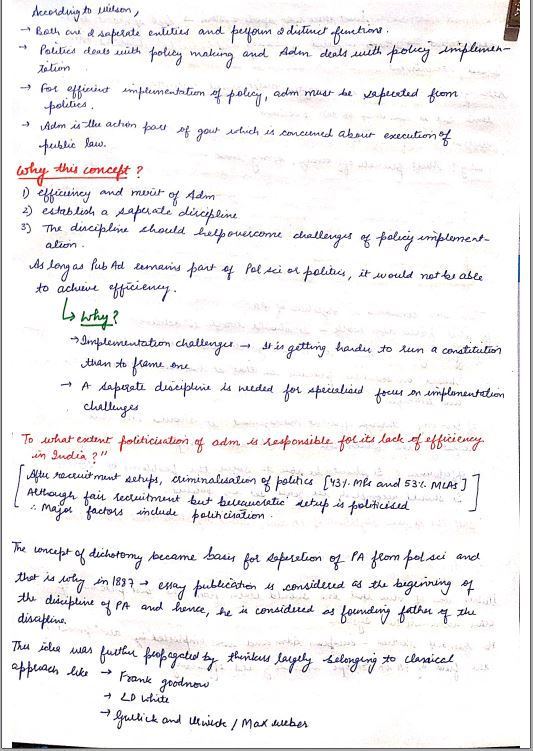 According to Wilson,
→ Both are 2 saperate entities and perform 2 distinct functions.
→ Politics deals with policy making and Adm deals with policy implemen-
tation
→ For efficient implementation of policy, adm must be saperated from
politics.
→ Adm is the action part of govt which is concerned about execution of
public law.
Why this concept ?
1) efficiency and merit of Adm
2) establish a saperate discipline
3) The discipline should help overcome challenges of policy implement-
ation.
As long as Pub Ad remains part of Pol sci or politics, it would not be able
to achieve efficiency.
↳ Why?
→ Implementation challenges → It is getting harder to run a constitution
than to frame one
→ A saperate discipline is needed for specialised focus on implementation
challenges
To what extent politicisation of adm is responsible for its lack of efficiency
in India ?"
[ After recruitment setups, criminalisation of politics [43% MPs and 53% MLAs] ]
Although fair recruitment but bureaucratic setup is politicised
∴ Major factors include politicisation.
The concept of dichotomy became basis for saperation of PA from pol sci and
that is why in 1887 → essay publication is considered as the beginning of
the discipline of PA and hence, he is considered as founding father of the
discipline.
This idea was further propagated by thinkers largely belonging to classical
approach like → Frank goodnow
→ LD White
→ Gullick and Urwick / Max weber